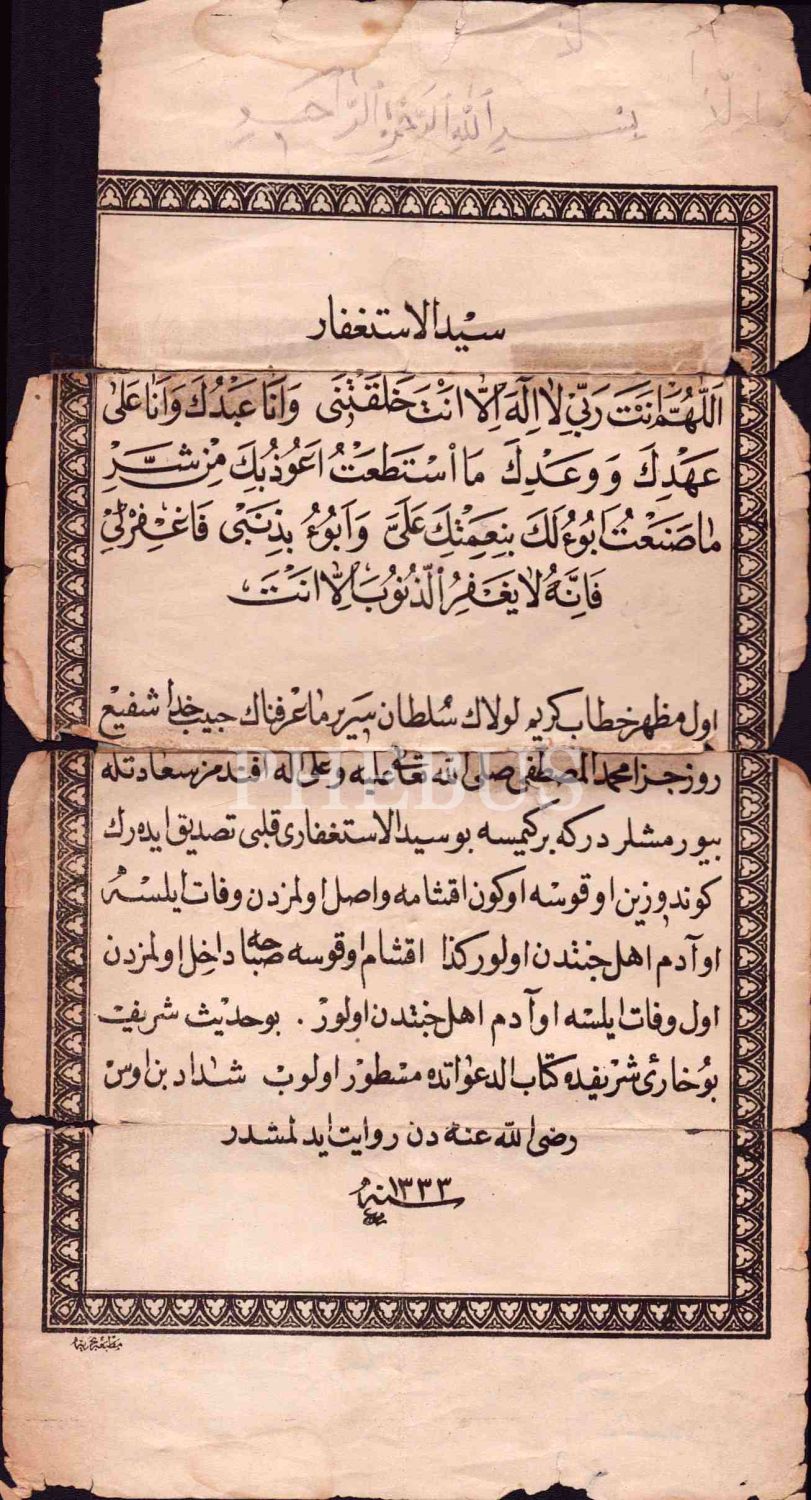 بسم الله الرحمن الرحيم
سيد الاستغفار
اَللّٰهُمَّ اَنْتَ رَبِّي لَا اِلٰهَ اِلَّا اَنْتَ خَلَقْتَنِى وَاَنَا عَبْدُكَ وَاَنَا عَلٰى
عَهْدِكَ وَوَعْدِكَ مَا اسْتَطَعْتُ اَعُوذُ بِكَ مِنْ شَرِّ
مَا صَنَعْتُ اَبُوءُ لَكَ بِنِعْمَتِكَ عَلَىَّ وَاَبُوءُ بِذَنْبِى فَاغْفِرْلِى
فَاِنَّهُ لَا يَغْفِرُ الذُّنُوبَ اِلَّا اَنْتَ
اول مظهر خطاب كريم لولاك سُلطان سرير ماعرفناك حبيب خدا شفيع
روز جزا محمد المصطفى صلى الله تعالى عليه وعلى اله افندمز سعادتله
بيورمشلر دركه بركيمسه بو سيد الاستغفارى قلبى تصديق ايده رك
كوندوزين اوقوسه اوكون اقشامه واصل اولمزدن وفات ايلسه
اوآدم اهل جنتدن اولور كذا اقشام اوقوسه صباحه داخل اولمزدن
اول وفات ايلسه اوآدم اهل جنتدن اولور . بوحديث شريف
بُوخارىٔ شريفده كتاب الدعواتده مسطور اولوب شداد بن اوس
رضى الله عنه دن روايت ايدلمشدر
سنه ١٣٣٣
PHEBUS